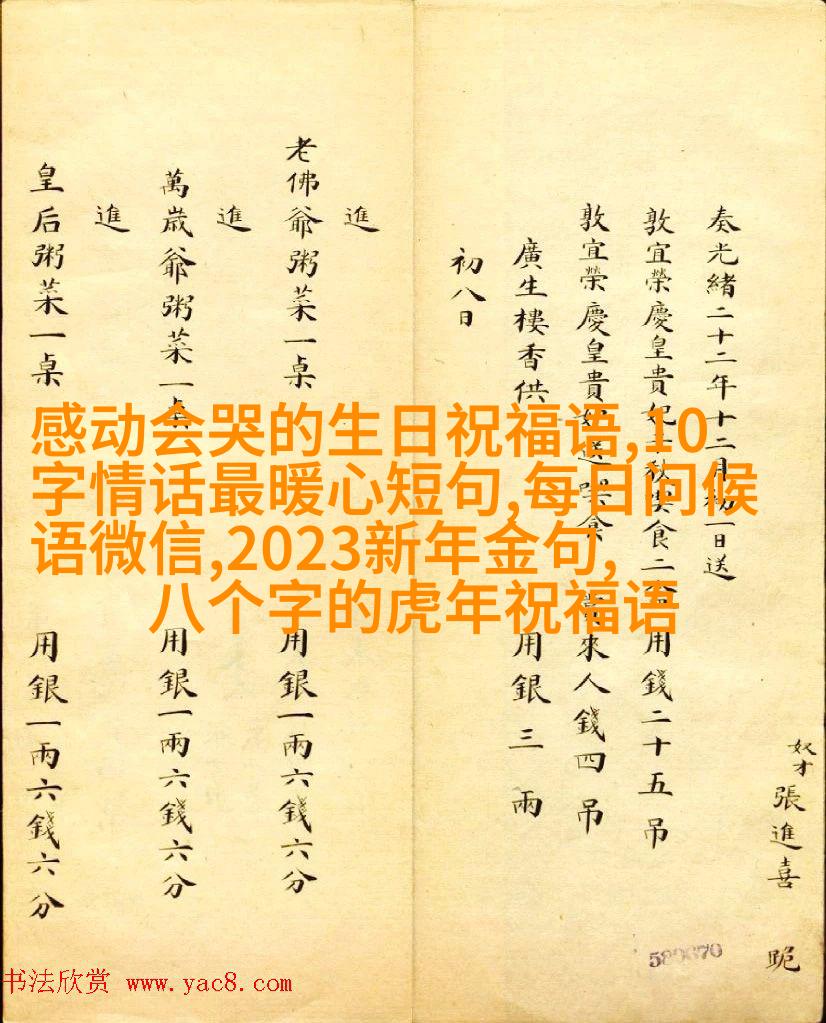 奴才張進喜 跪
奏光緒二十二年十二月初一日送
敦宜榮慶皇貴妃 食二 用錢二十五吊
敦宜榮慶皇貴妃送 食 賞來人錢四吊
廣生樓香供 用銀三兩
初八日
進
老佛爺粥菜一桌 用銀一兩六錢六分
進
萬歲爺粥菜一桌 用銀一兩六錢六分
進
皇后粥菜一桌 用銀一兩六錢六分
感动会哭的生日祝福语,10
字情话最暖心短句,每日问候
语微信,2023新年金句,
八个字的虎年祝福语
书法欣赏 www.yac8.com